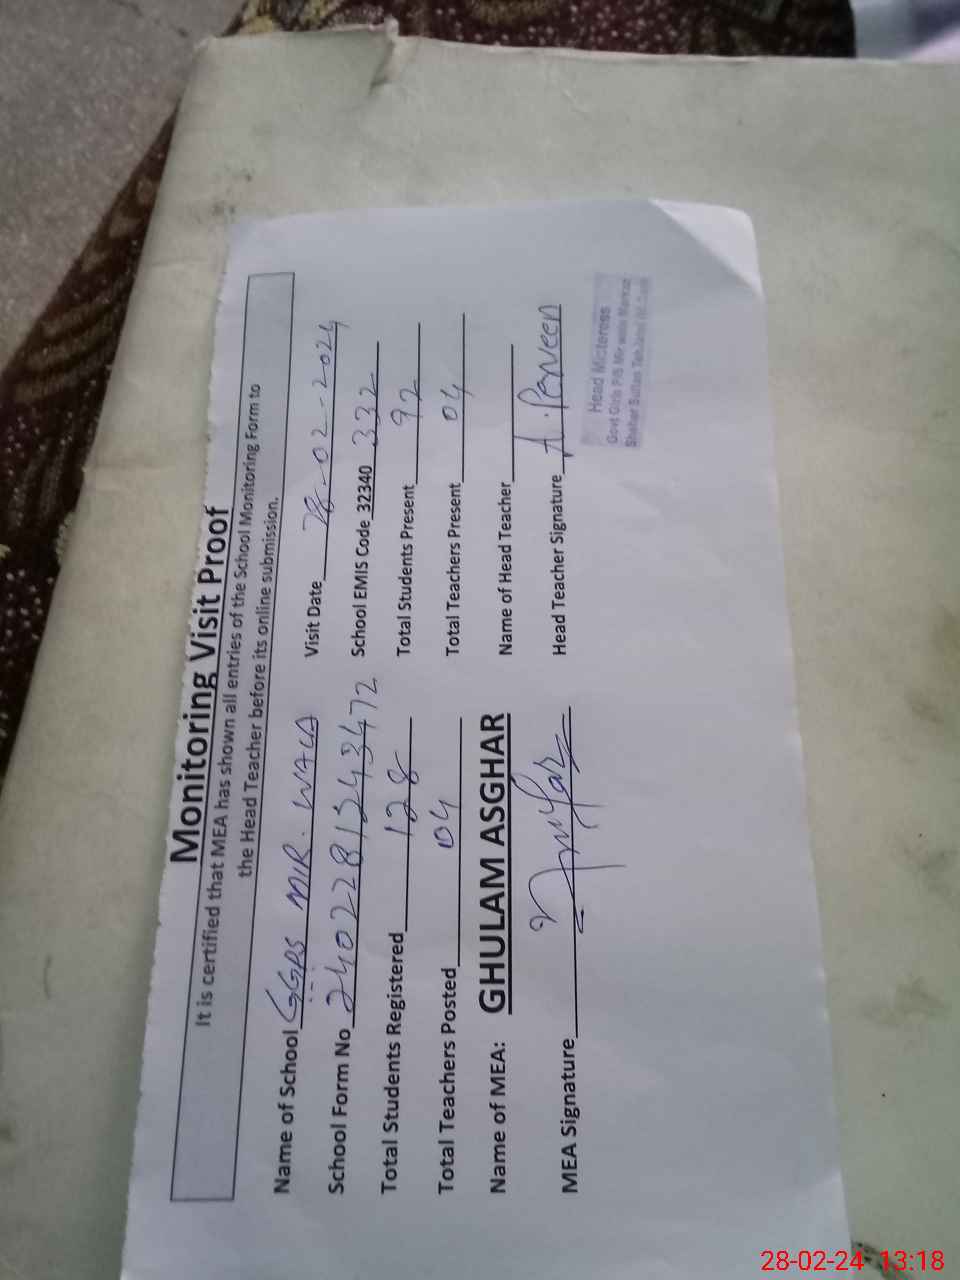 Monitoring Visit Proof
It is certified that MEA has shown all entries of the School Monitoring Form to
the Head Teacher before its online submission.
Name of School GGPS MIR. WALA Visit Date 28-02-2024
School Form No 2402281243472 School EMIS Code 32340 332
Total Students Registered 128 Total Students Present 92
Total Teachers Posted 04 Total Teachers Present 04
Name of MEA: GHULAM ASGHAR Name of Head Teacher
MEA Signature Head Teacher Signature A. Perveen
Head Misteress
Govt Girls P/S Mir wala
Sultan
28-02-24 13:18